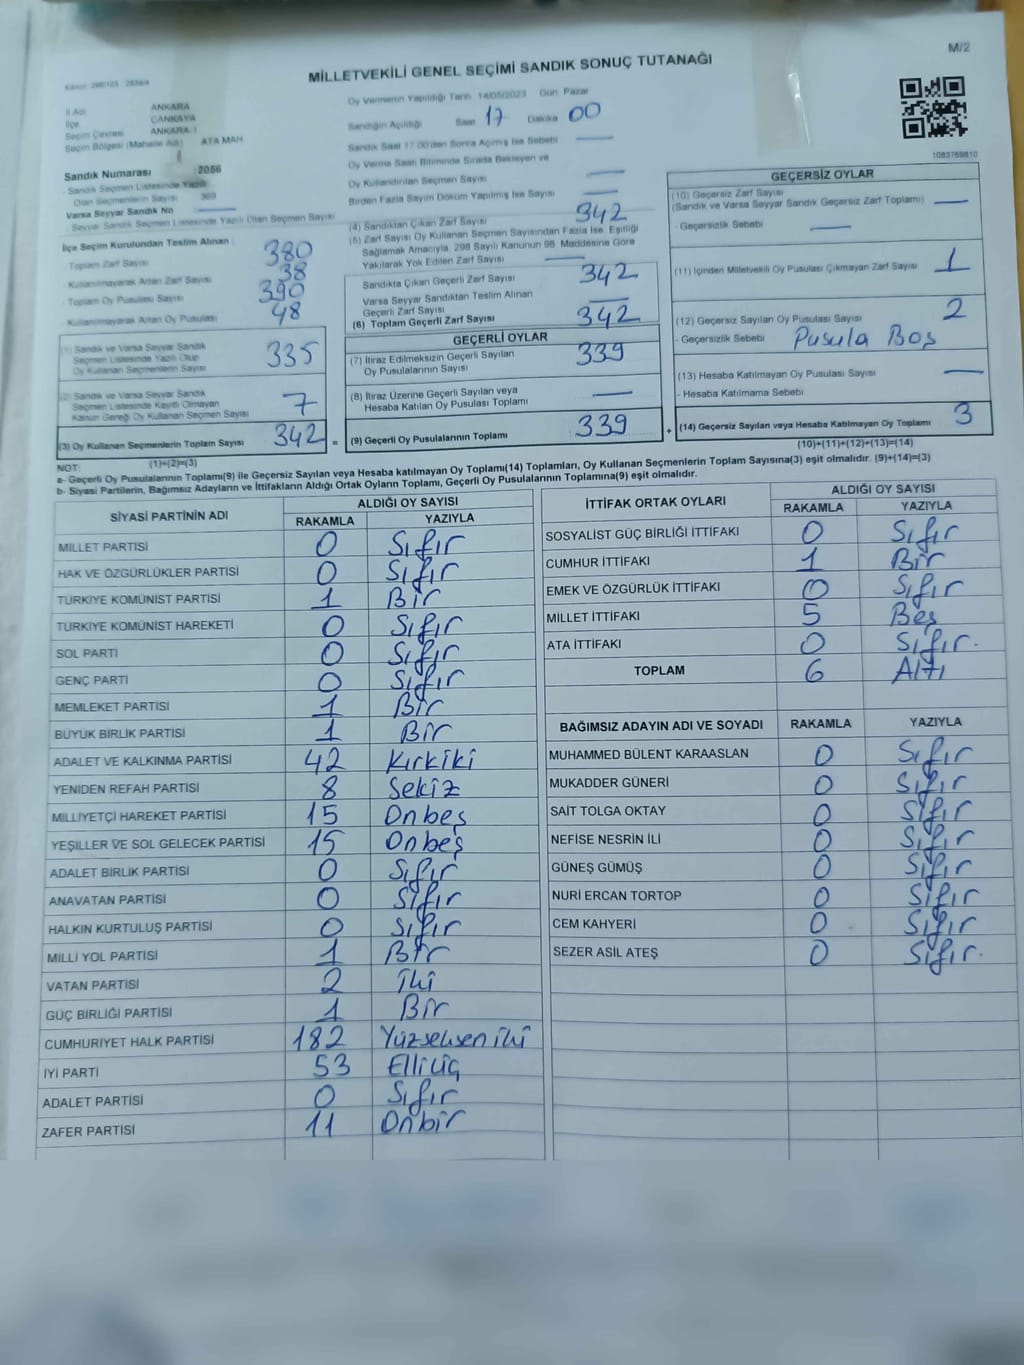 M/2
MİLLETVEKİLİ GENEL SEÇİMİ SANDIK SONUÇ TUTANAĞI
İl Adı ANKARA
İlçe ÇANKAYA
Seçim Çevresi ANKARA-1
Seçim Bölgesi (Mahalle Adı) ATA MAH
Sandık Numarası 2056
Sandık Seçmen Listesinde Yazılı
Olan Seçmenlerin Sayısı
Varsa Seyyar Sandık No
Seyyar Sandık Seçmen Listesinde Yazılı Olan Seçmen Sayısı
İlçe Seçim Kurulundan Teslim Alınan
Toplam Zarf Sayısı 380
Kullanılmayarak Artan Zarf Sayısı 38
Toplam Oy Pusulası Sayısı 390
Kullanılmayarak Artan Oy Pusulası 48
(1) Sandık ve Varsa Seyyar Sandık
Seçmen Listesinde Yazılı Olup
Oy Kullanan Seçmenlerin Sayısı 335
(2) Sandık ve Varsa Seyyar Sandık
Seçmen Listesinde Kayıtlı Olmayan
Kanun Gereği Oy Kullanan Seçmen Sayısı 7
(3) Oy Kullanan Seçmenlerin Toplam Sayısı 342 =
(1)+(2)=(3)
Oy Vermenin Yapıldığı Tarih 14/05/2023 Gün Pazar
Sandığın Açıldığı Saat 17 Dakika 00
Sandık Saat 17:00'den Sonra Açılmış İse Sebebi
Oy Verme Saati Bitiminde Sırada Bekleyen ve
Oy Kullandırılan Seçmen Sayısı
Birden Fazla Sayım Döküm Yapılmış İse Sayısı
(4) Sandıktan Çıkan Zarf Sayısı 342
(5) Zarf Sayısı Oy Kullanan Seçmen Sayısından Fazla İse, Eşitliği
Sağlamak Amacıyla, 298 Sayılı Kanunun 98. Maddesine Göre
Yakılarak Yok Edilen Zarf Sayısı
Sandıkta Çıkan Geçerli Zarf Sayısı 342
Varsa Seyyar Sandıktan Teslim Alınan
Geçerli Zarf Sayısı
(6) Toplam Geçerli Zarf Sayısı 342
GEÇERLİ OYLAR
(7) İtiraz Edilmeksizin Geçerli Sayılan
Oy Pusulalarının Sayısı 339
(8) İtiraz Üzerine Geçerli Sayılan veya
Hesaba Katılan Oy Pusulası Toplamı
(9) Geçerli Oy Pusulalarının Toplamı 339 +
1083769810
GEÇERSİZ OYLAR
(10) Geçersiz Zarf Sayısı
(Sandık ve Varsa Seyyar Sandık Geçersiz Zarf Toplamı)
- Geçersizlik Sebebi
(11) İçinden Milletvekili Oy Pusulası Çıkmayan Zarf Sayısı 1
(12) Geçersiz Sayılan Oy Pusulası Sayısı 2
- Geçersizlik Sebebi Pusula Boş
(13) Hesaba Katılmayan Oy Pusulası Sayısı
- Hesaba Katılmama Sebebi
(14) Geçersiz Sayılan veya Hesaba Katılmayan Oy Toplamı 3
(10)+(11)+(12)+(13)=(14)
NOT:
a- Geçerli Oy Pusulalarının Toplamı(9) ile Geçersiz Sayılan veya Hesaba katılmayan Oy Toplamı(14) Toplamları, Oy Kullanan Seçmenlerin Toplam Sayısına(3) eşit olmalıdır. (9)+(14)=(3)
b- Siyasi Partilerin, Bağımsız Adayların ve İttifakların Aldığı Ortak Oyların Toplamı, Geçerli Oy Pusulalarının Toplamına(9) eşit olmalıdır.
SİYASİ PARTİNİN ADI ALDIĞI OY SAYISI
RAKAMLA YAZIYLA
MİLLET PARTİSİ 0 Sıfır
HAK VE ÖZGÜRLÜKLER PARTİSİ 0 Sıfır
TÜRKİYE KOMÜNİST PARTİSİ 1 Bir
TÜRKİYE KOMÜNİST HAREKETİ 0 Sıfır
SOL PARTİ 0 Sıfır
GENÇ PARTİ 0 Sıfır
MEMLEKET PARTİSİ 1 Bir
BÜYÜK BİRLİK PARTİSİ 1 Bir
ADALET VE KALKINMA PARTİSİ 42 Kırkiki
YENİDEN REFAH PARTİSİ 8 Sekiz
MİLLİYETÇİ HAREKET PARTİSİ 15 Onbeş
YEŞİLLER VE SOL GELECEK PARTİSİ 15 Onbeş
ADALET BİRLİK PARTİSİ 0 Sıfır
ANAVATAN PARTİSİ 0 Sıfır
HALKIN KURTULUŞ PARTİSİ 0 Sıfır
MİLLİ YOL PARTİSİ 1 Bir
VATAN PARTİSİ 2 İki
GÜÇ BİRLİĞİ PARTİSİ 1 Bir
CUMHURİYET HALK PARTİSİ 182 Yüzseksen iki
İYİ PARTİ 53 Elliüç
ADALET PARTİSİ 0 Sıfır
ZAFER PARTİSİ 11 Onbir
İTTİFAK ORTAK OYLARI ALDIĞI OY SAYISI
RAKAMLA YAZIYLA
SOSYALİST GÜÇ BİRLİĞİ İTTİFAKI 0 Sıfır
CUMHUR İTTİFAKI 1 Bir
EMEK VE ÖZGÜRLÜK İTTİFAKI 0 Sıfır
MİLLET İTTİFAKI 5 Beş
ATA İTTİFAKI 0 Sıfır.
TOPLAM 6 Altı
BAĞIMSIZ ADAYIN ADI VE SOYADI RAKAMLA YAZIYLA
MUHAMMED BÜLENT KARAASLAN 0 Sıfır
MUKADDER GÜNERİ 0 Sıfır
SAİT TOLGA OKTAY 0 Sıfır
NEFİSE NESRİN İLİ 0 Sıfır
GÜNEŞ GÜMÜŞ 0 Sıfır
NURİ ERCAN TORTOP 0 Sıfır
CEM KAHYERİ 0 Sıfır
SEZER ASİL ATEŞ 0 Sıfır.